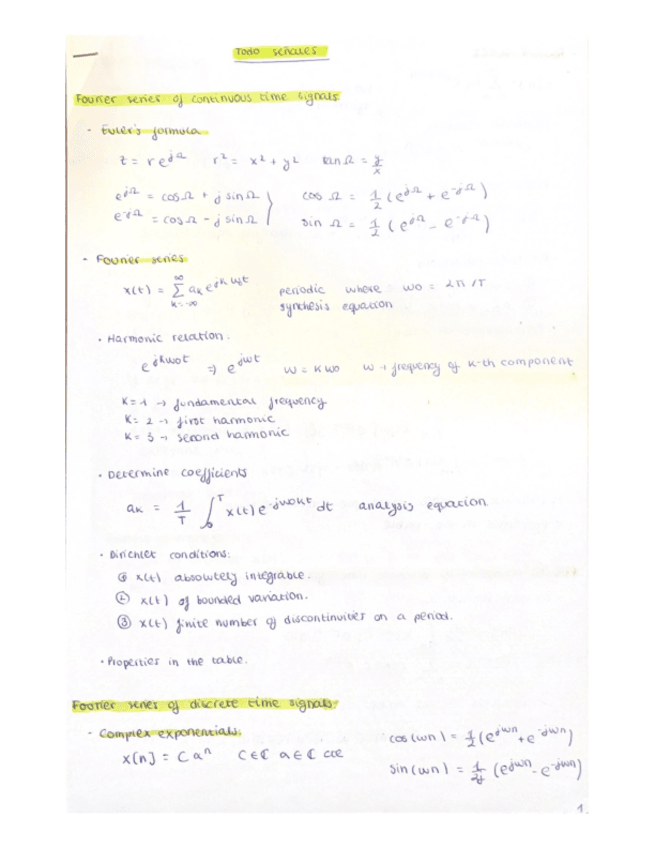 Todo señales
Fourier series of continuous time signals
- Euler's formula
z = r e^{jΩ}   r² = x² + y²   tan Ω = y/x
e^{jΩ} = cos Ω + j sin Ω   cos Ω = 1/2 (e^{jΩ} + e^{-jΩ})
e^{-jΩ} = cos Ω - j sin Ω   sin Ω = 1/2 (e^{jΩ} - e^{-jΩ})
- Fourier series
x(t) = ∑_{k=-∞}^{∞} a_k e^{jk w_0 t}   periodic where w0 = 2π/T
synthesis equation
· Harmonic relation:
e^{jkw_0t} ⇒ e^{jwt}   w = k w0   w → frequency of k-th component
k = 1 → fundamental frequency
k = 2 → first harmonic
k = 3 → second harmonic
· Determine coefficients
a_k = 1/T ∫_0^T x(t) e^{-jw_0kt} dt   analysis equation.
· Dirichlet conditions:
① x(t) absolutely integrable.
② x(t) of bounded variation.
③ x(t) finite number of discontinuities on a period.
· Properties in the table.
Fourier series of discrete time signals
- Complex exponentials.   cos(wn) = 1/2 (e^{jwn} + e^{-jwn})
x[n] = C a^n   C ∈ ℂ   a ∈ ℂ   cte
sin(wn) = 1/2j (e^{jwn} - e^{-jwn})
1.